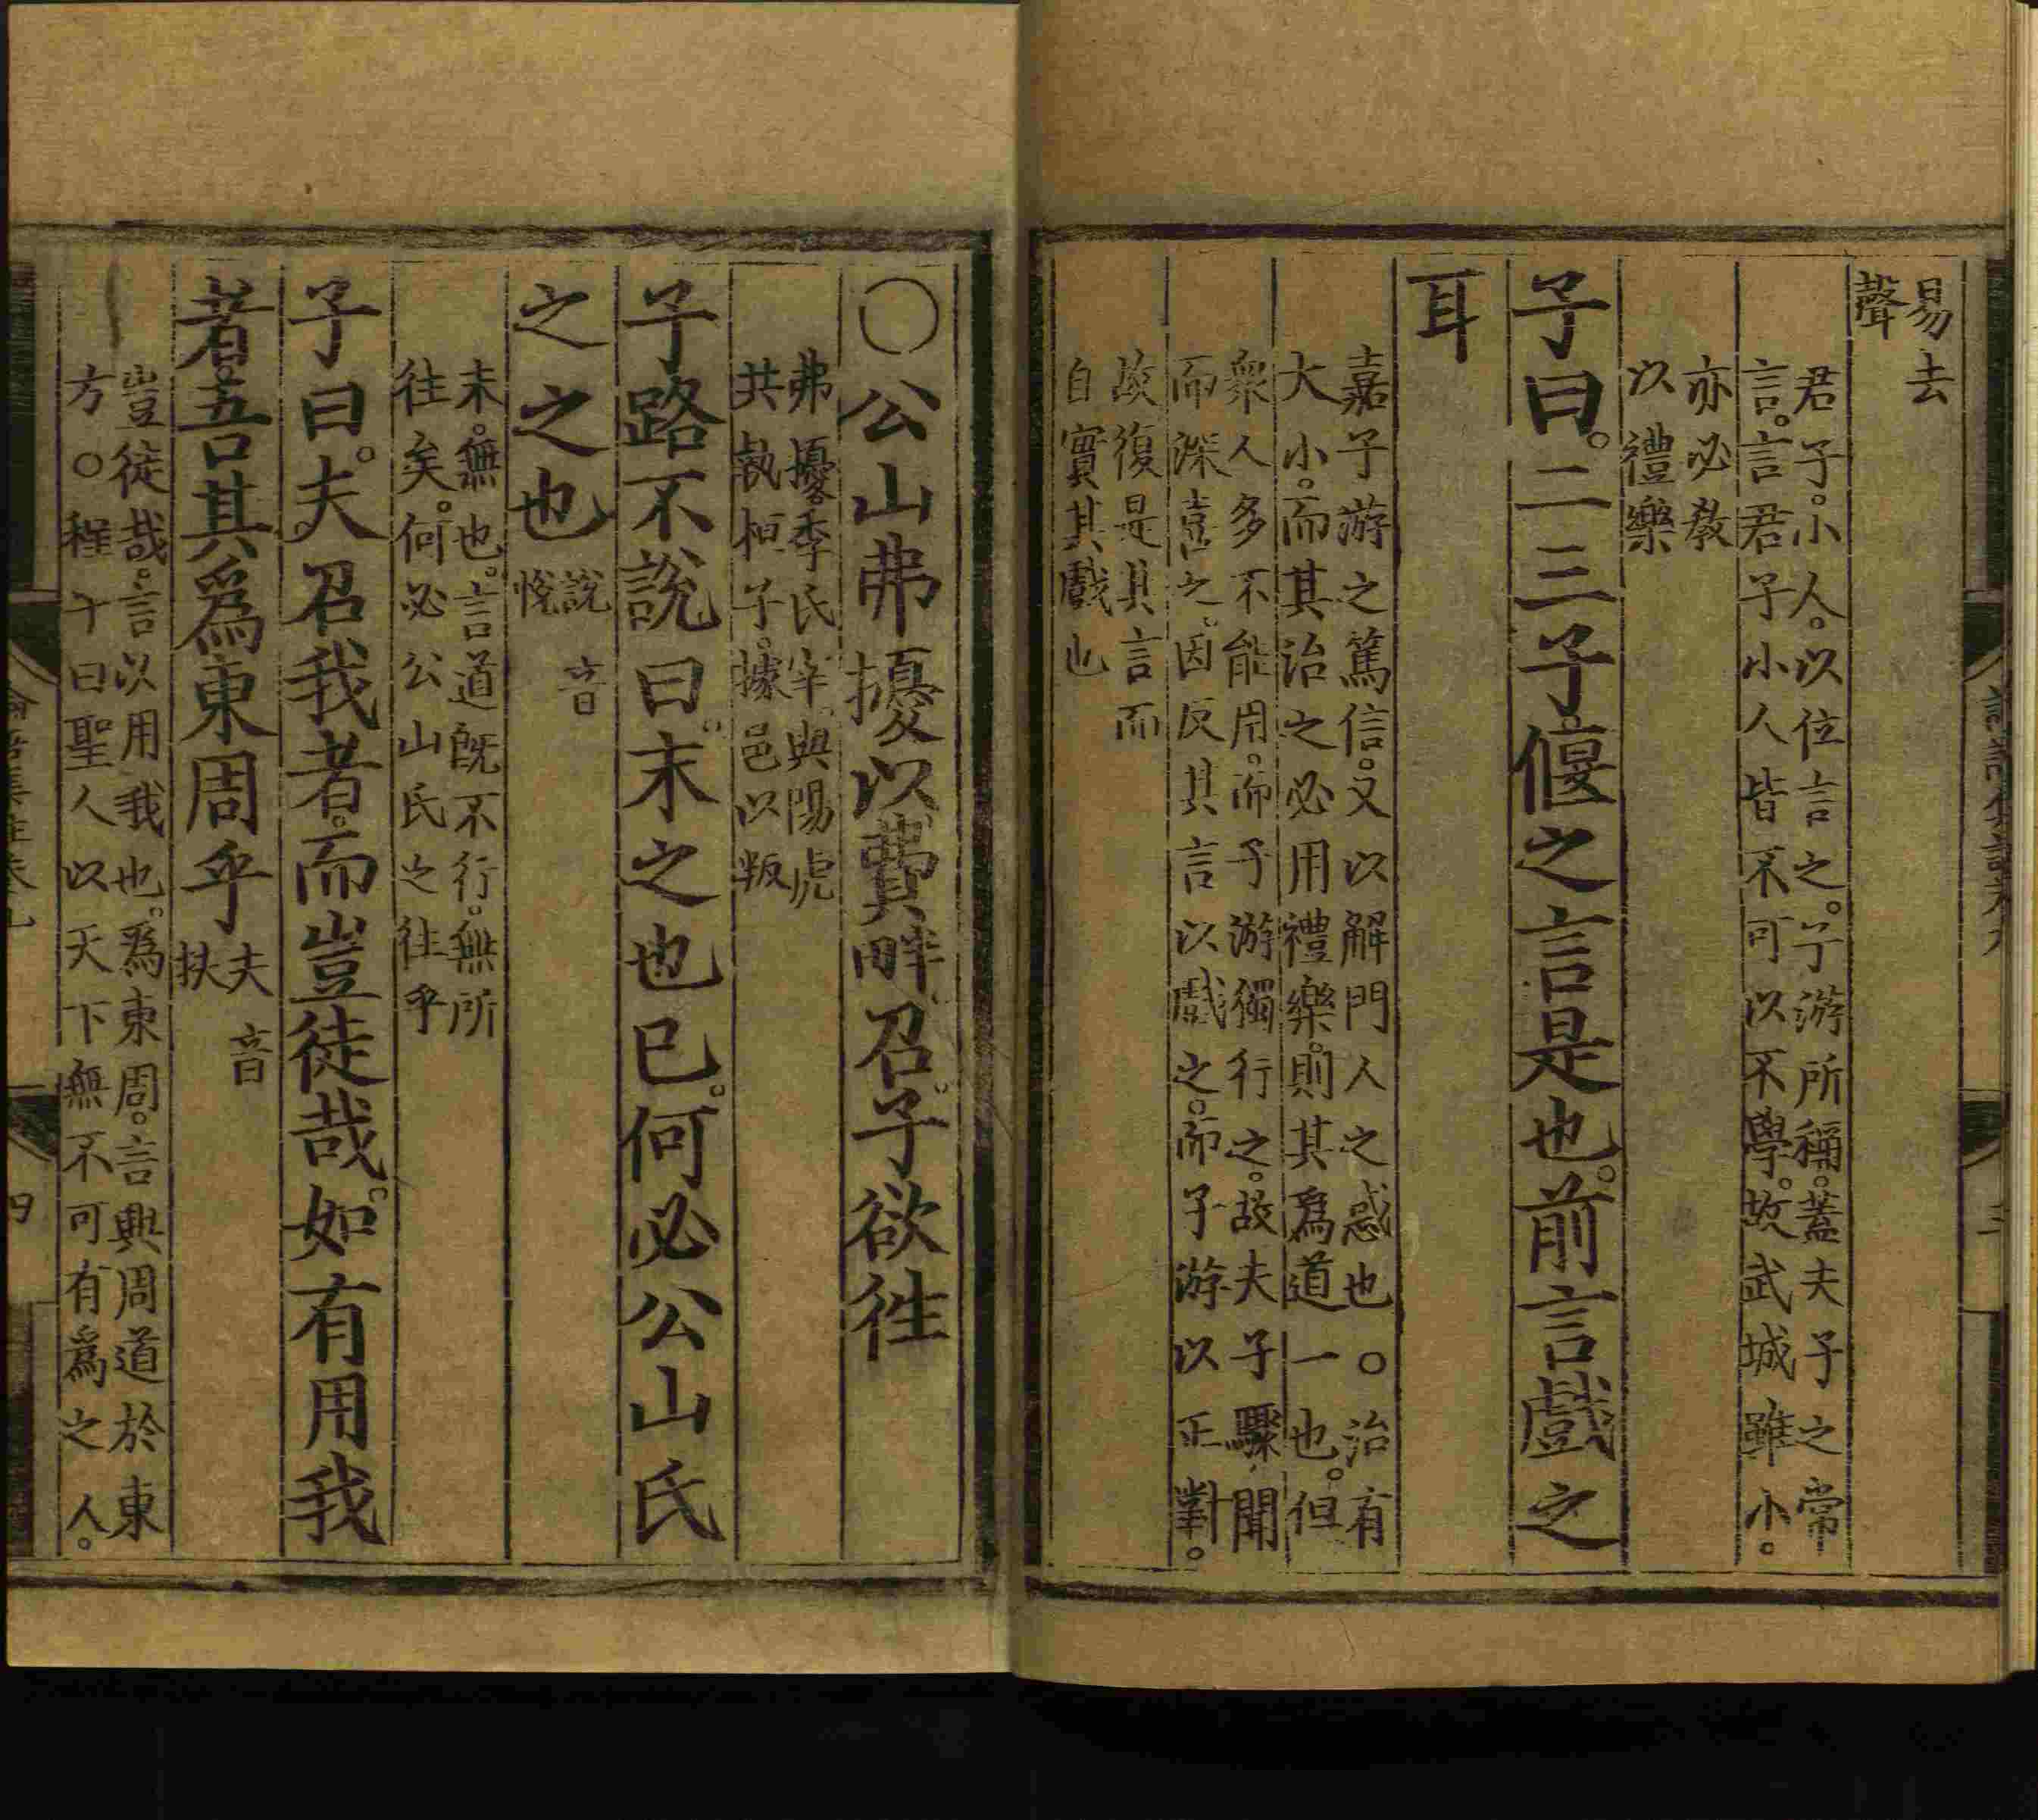 易去
聲
君子。小人。以位言之。子游所稱。蓋夫子之常
言。言君子小人皆不可以不學。故武城雖小。
亦必教
以禮樂
子曰。二三子。偃之言是也。前言戲之
耳
嘉子游之篤信。又以解門人之惑也○治有
大小。而其治之必用禮樂。則其爲道一也。但
衆人多不能用。而子游獨行之。故夫子驟聞
而深喜之。因反其言以戲之。而子游以正對。
故復是其言而
自實其戲也
○公山弗擾以費畔召。子欲徃
弗擾。季氏宰。與陽虎
共執桓子。據邑以叛
子路不說曰。末之也已。何必公山氏
之之也
說音
悅
末。無也。言道既不行。無所
往矣。何必公山氏之往乎
子曰。夫召我者。而豈徒哉。如有用我
者。吾其爲東周乎
夫音
扶
豈徒哉。言以用我也。爲東周。言興周道於東
方。○程子曰聖人以天下無不可有爲之人。
四